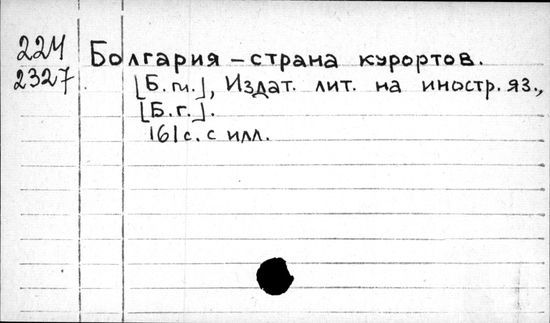 224 Болгария – страна курортов.
2327 [Б.м.], Издат. лит. на иностр. яз.,
[Б.г.].
161 с. с илл.